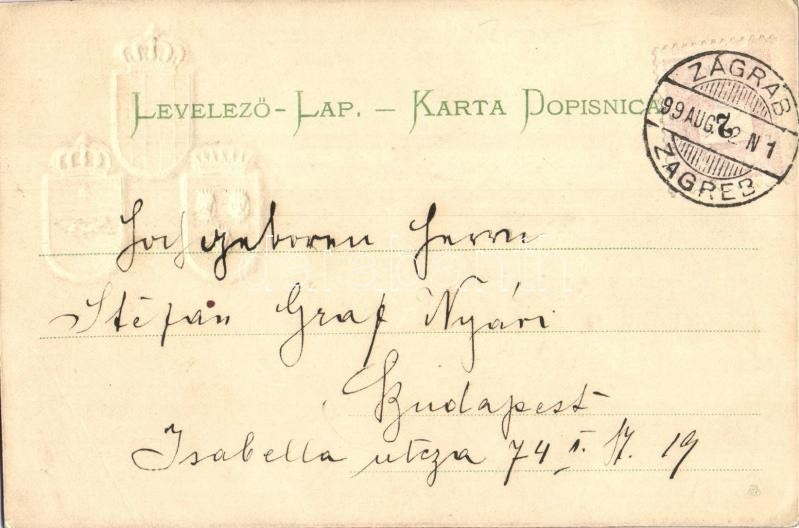 LEVELEZŐ-LAP. — KARTA DOPISNICA
ZÁGRÁB
99 AUG. 2 N 1
ZAGREB
Hochgeboren Herrn
Stéfan Graf Nyári
Budapest
Isabella utcza 74 I. St. 19
darabanth